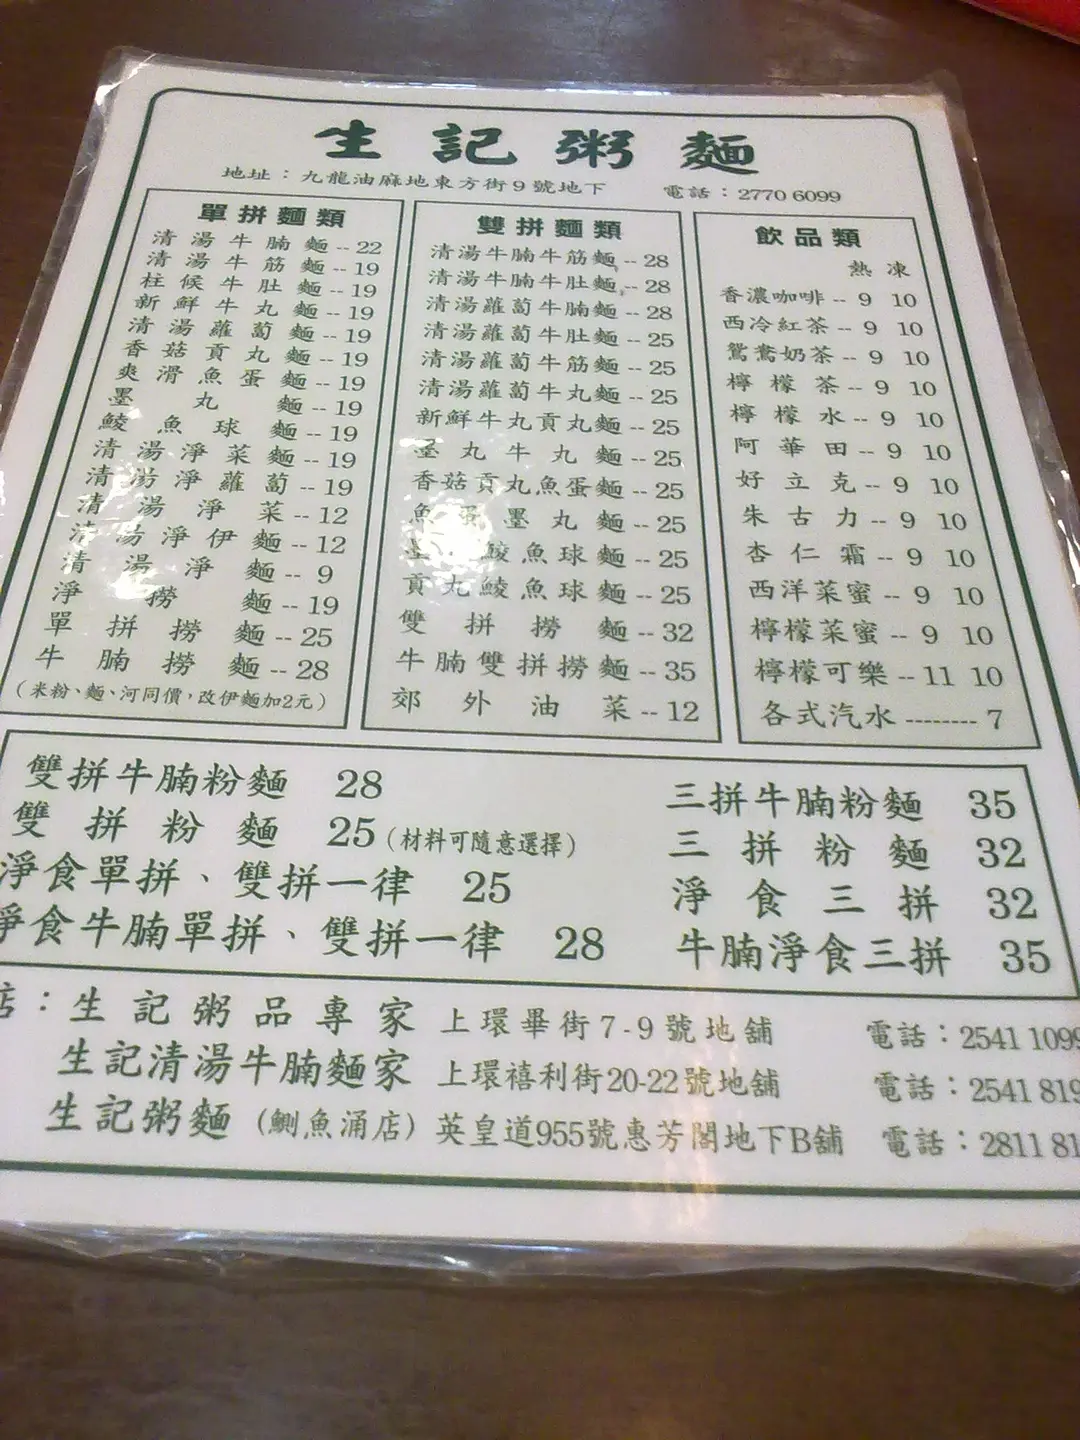 生記粥麵
地址：九龍油麻地東方街9號地下 電話：2770 6099
單拼麵類
清湯牛腩麵--22
清湯牛筋麵--19
柱候牛肚麵--19
新鮮牛丸麵--19
清湯蘿蔔麵--19
香菇貢丸麵--19
爽滑魚蛋麵--19
墨丸麵--19
鯪魚球麵--19
清湯淨菜麵--19
清湯淨蘿蔔--19
清湯淨菜--12
清湯淨伊麵--12
清湯淨麵--9
淨撈麵--19
單拼撈麵--25
牛腩撈麵--28
（米粉、麵、河同價，改伊麵加2元）
雙拼麵類
清湯牛腩牛筋麵--28
清湯牛腩牛肚麵--28
清湯蘿蔔牛腩麵--28
清湯蘿蔔牛肚麵--25
清湯蘿蔔牛筋麵--25
清湯蘿蔔牛丸麵--25
新鮮牛丸貢丸麵--25
墨丸牛丸麵--25
香菇貢丸魚蛋麵--25
魚蛋墨丸麵--25
鯪魚球麵--25
貢丸鯪魚球麵--25
雙拼撈麵--32
牛腩雙拼撈麵--35
郊外油菜--12
飲品類
熱 凍
香濃咖啡--9 10
西冷紅茶--9 10
鴛鴦奶茶--9 10
檸檬茶--9 10
檸檬水--9 10
阿華田--9 10
好立克--9 10
朱古力--9 10
杏仁霜--9 10
西洋菜蜜--9 10
檸檬菜蜜--9 10
檸檬可樂--11 10
各式汽水--------7
雙拼牛腩粉麵 28
雙拼粉麵 25（材料可隨意選擇）
淨食單拼、雙拼一律 25
淨食牛腩單拼、雙拼一律 28
三拼牛腩粉麵 35
三拼粉麵 32
淨食三拼 32
牛腩淨食三拼 35
店：生記粥品專家 上環畢街7-9號地舖 電話：2541 1099
生記清湯牛腩麵家 上環禧利街20-22號地舖 電話：2541 819
生記粥麵（鰂魚涌店）英皇道955號惠芳閣地下B舖 電話：2811 81